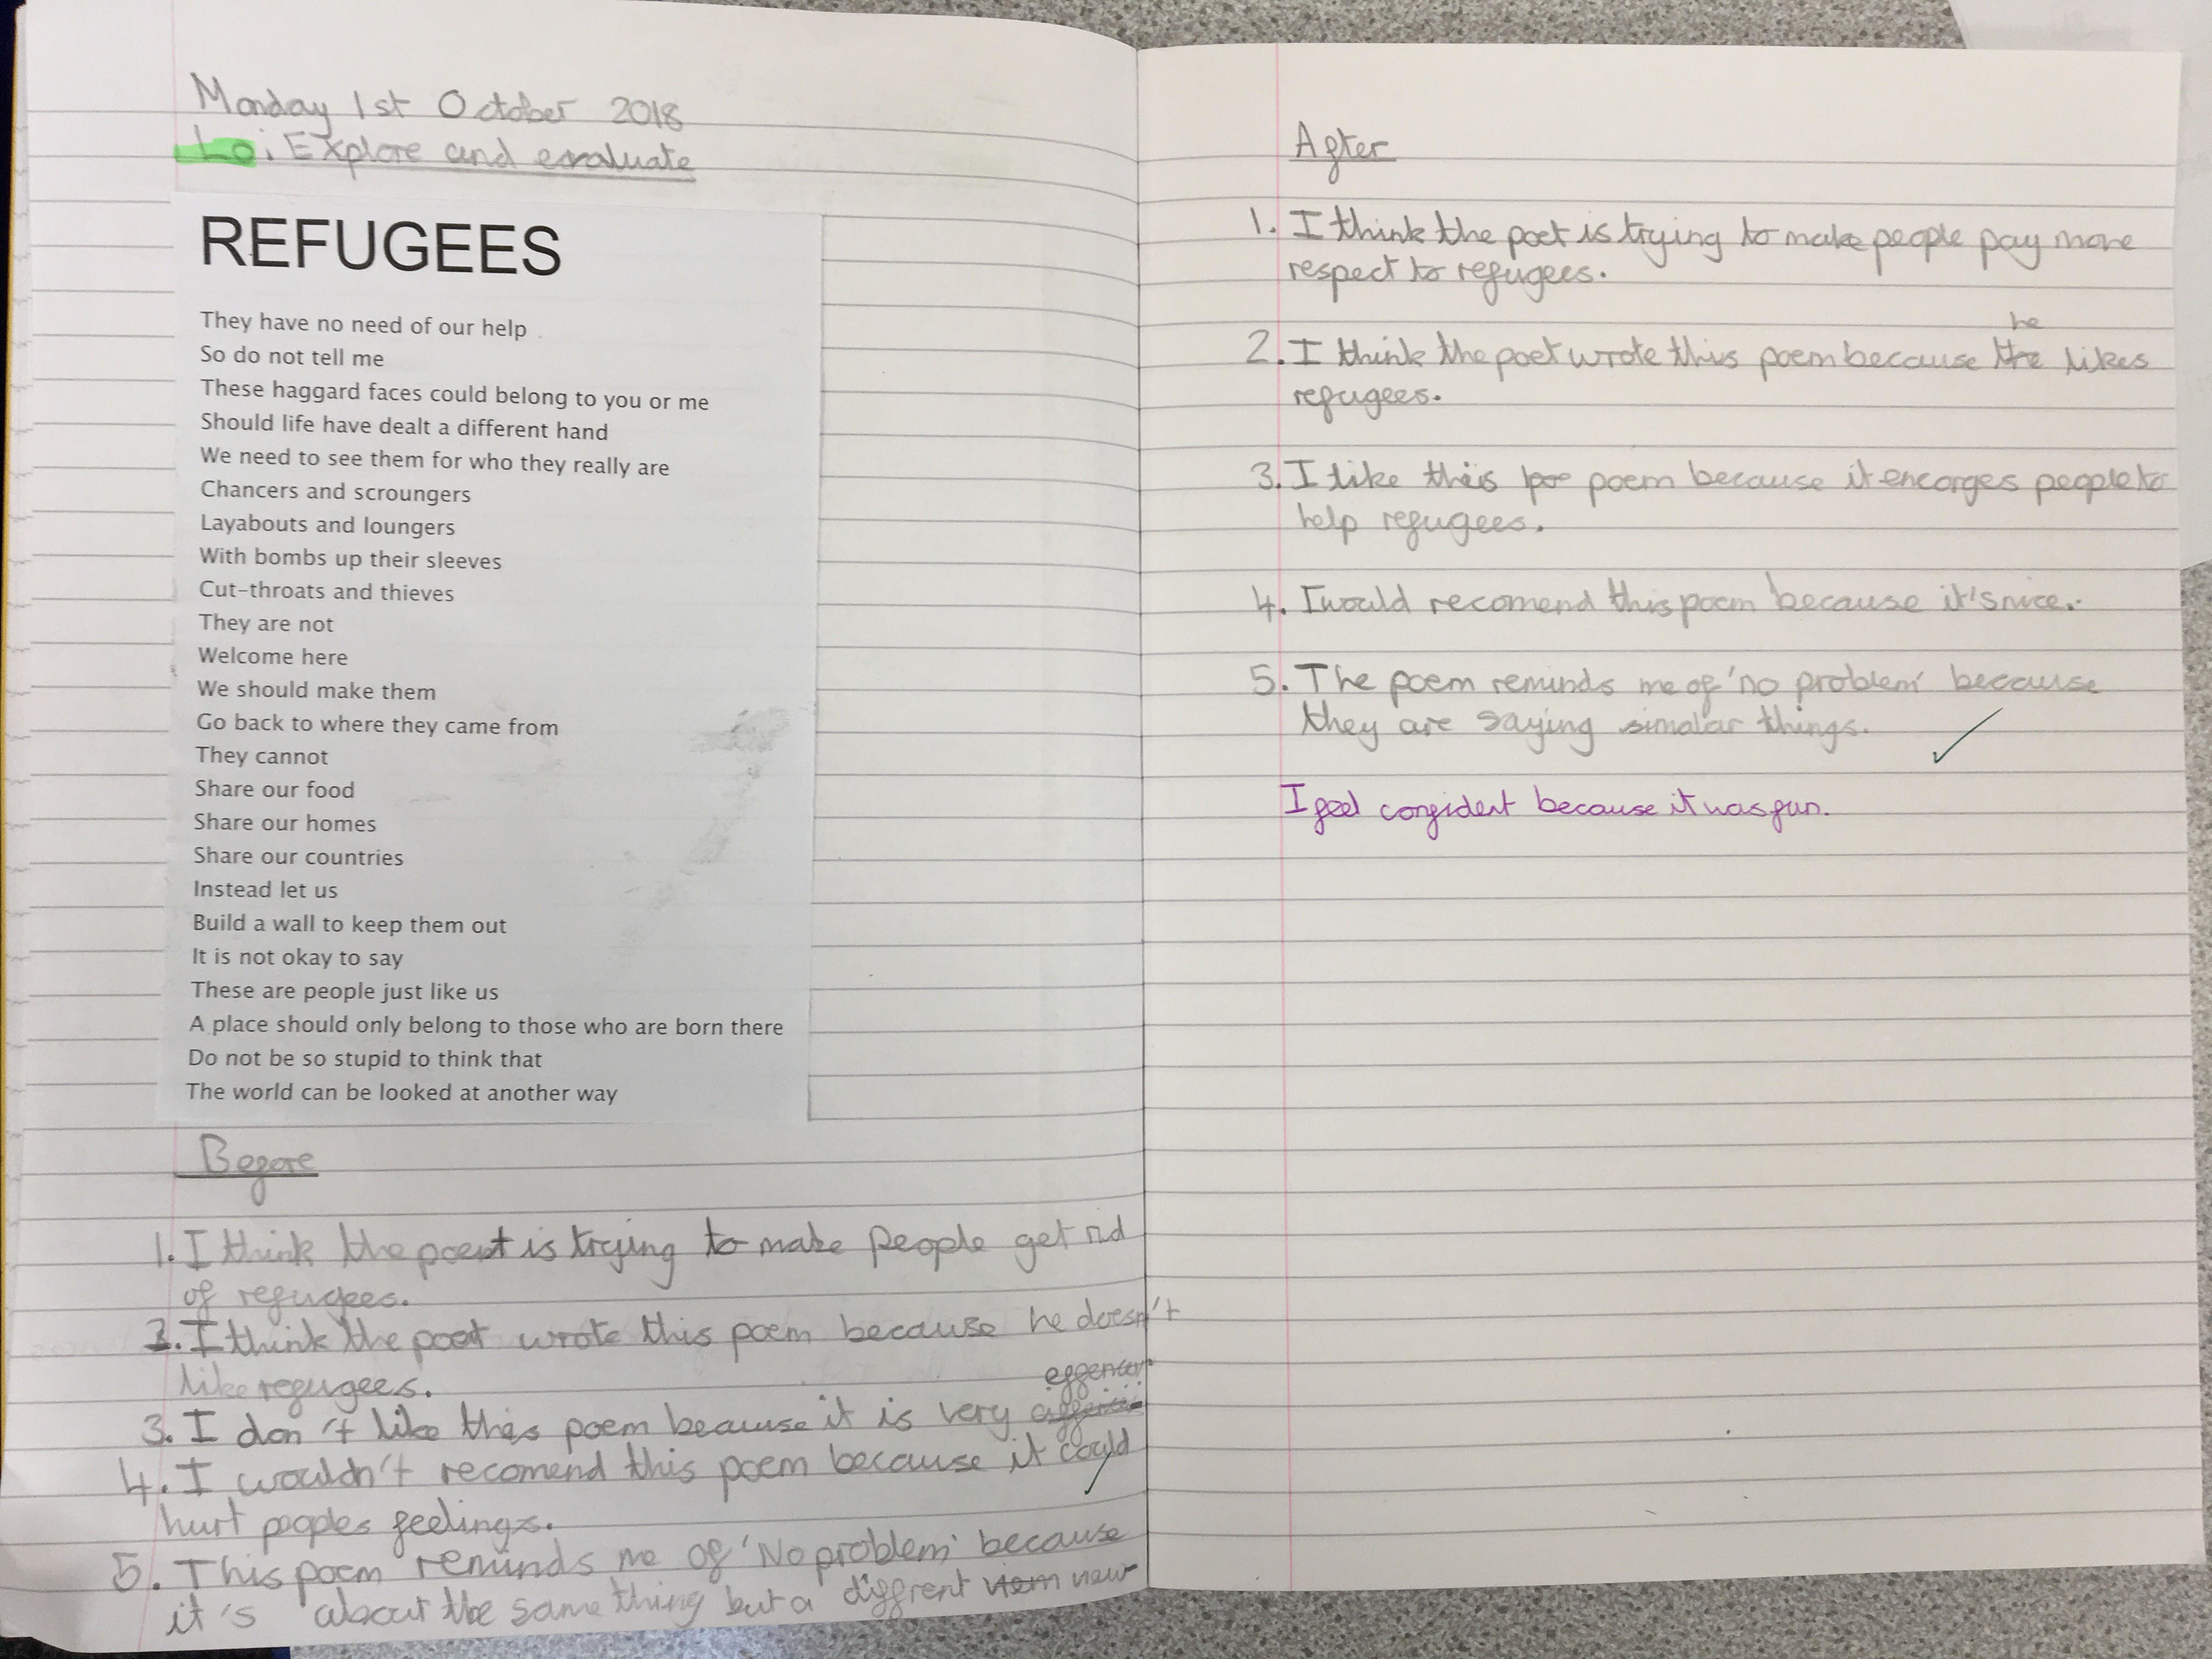 Monday 1st October 2018
Lo: Explore and evaluate
REFUGEES
They have no need of our help
So do not tell me
These haggard faces could belong to you or me
Should life have dealt a different hand
We need to see them for who they really are
Chancers and scroungers
Layabouts and loungers
With bombs up their sleeves
Cut-throats and thieves
They are not
Welcome here
We should make them
Go back to where they came from
They cannot
Share our food
Share our homes
Share our countries
Instead let us
Build a wall to keep them out
It is not okay to say
These are people just like us
A place should only belong to those who are born there
Do not be so stupid to think that
The world can be looked at another way
Before
1. I think the poet is trying to make people get rid
of refugees.
2. I think the poet wrote this poem because he doesn't
like refugees.
3. I don't like this poem because it is very
4. I wouldn't recomend this poem because it could
hurt peoples feelings.
5. This poem reminds me of 'No problem' because
it's about the same thing but a diffrent view
After
1. I think the poet is trying to make people pay more
respect to refugees.
2. I think the poet wrote this poem because he likes
refugees.
3. I like this poem because it encorges people to
help refugees.
4. I would recomend this poem because it's nice.
5. The poem reminds me of 'no problem' because
they are saying simalar things.
I feel confident because it was fun.